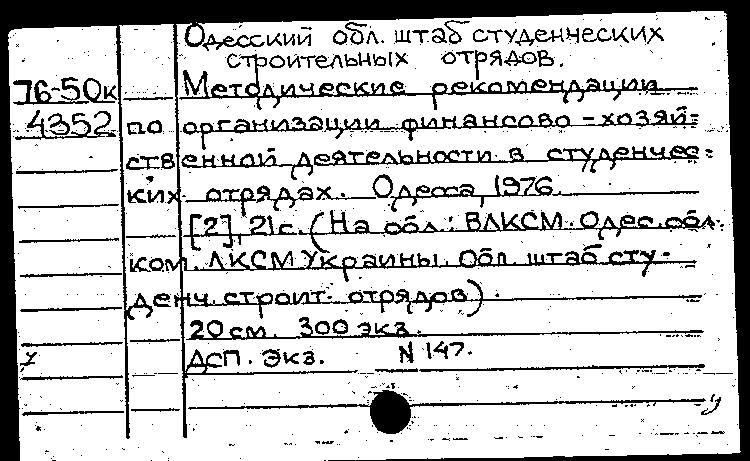 Одесский обл. штаб студенческих
строительных отрядов.
76-50к Методические рекомендации
4352 по организации финансово-хозяй=
ственной деятельности в студенчес=
ких отрядах. Одесса, 1976.
[2], 21 с. (На обл.: ВЛКСМ. Одес. обл.
ком. ЛКСМ Украины. Обл. штаб сту-
денч. строит. отрядов).
20 см. 300 экз.
ДСП. Экз. N 147.